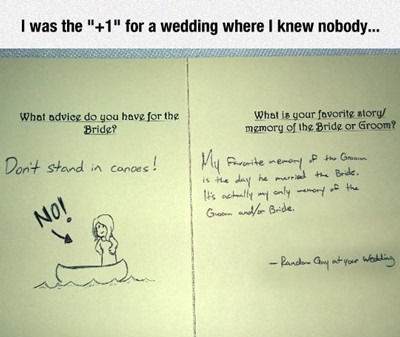 I was the "+1" for a wedding where I knew nobody...
What advice do you have for the
Bride?
Don't stand in canoes!
NO!
What is your favorite story/
memory of the Bride or Groom?
My Favorite memory of the Groom
is the day he married the Bride.
It's actually my only memory of the
Groom and/or Bride.
- Random Guy at your Wedding